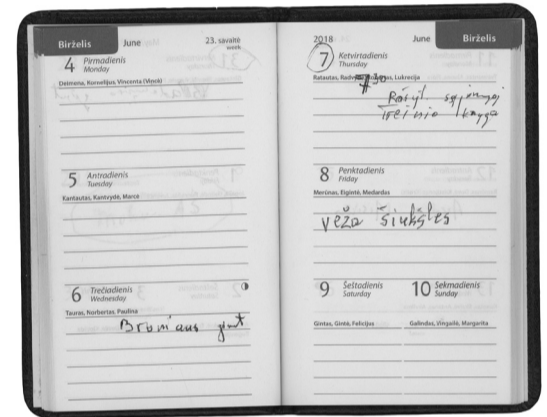 Birželis
June
23. savaitė
week
4 Pirmadienis
Monday
Deimena, Kornelijus, Vincenta (Vincė)
5 Antradienis
Tuesday
Kantautas, Kantvydė, Marcė
6 Trečiadienis
Wednesday
Tauras, Norbertas, Paulina
Broniaus gimt
2018
June
Birželis
7 Ketvirtadienis
Thursday
Ratautas, Lukrecija
7 30
knyga
8 Penktadienis
Friday
Merūnas, Eigintė, Medardas
veža šiukšles
9 Šeštadienis
Saturday
Gintas, Gintė, Felicijus
10 Sekmadienis
Sunday
Galindas, Vingailė, Margarita